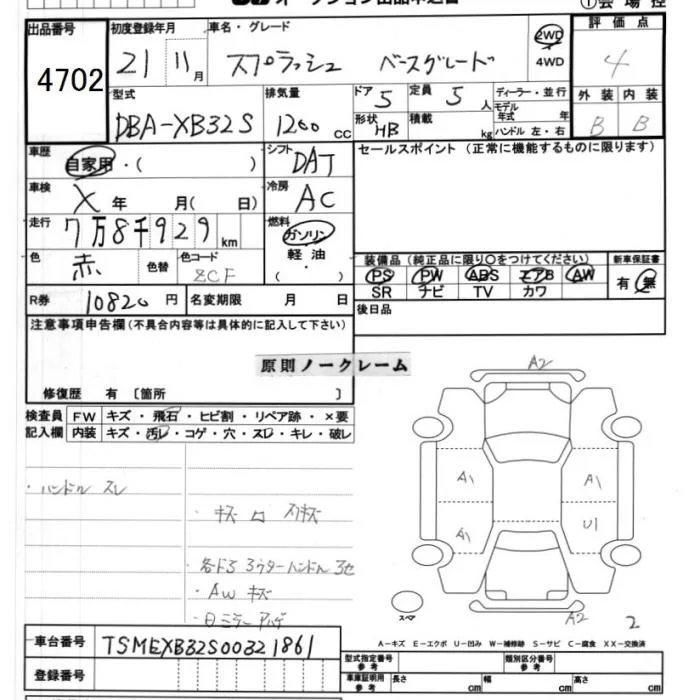 ①会場控
出品番号 初度登録年月 車名・グレード 2WD 評価点
4702 21 11月 スプラッシュ ベースグレード 4WD 4
型式 排気量 ドア 5 定員 5人 ディーラー・並行 外装 内装
DBA-XB32S 1200cc 形状 HB 積載 kg モデル年式 年 ハンドル 左・右 B B
車歴 自家用・( ) シフト DAT セールスポイント(正常に機能するものに限ります)
車検 X年 月( 日) 冷房 AC
走行 7万8千929km 燃料 ガソリン 軽油・( )
色 赤 色替 色コード ZCF
装備品(純正品に限り○をつけてください) 新車保証書
PS PW ABS エアB AW 有・無
SR ナビ TV カワ
R券 10820円 名変期限 月 日 後日品
注意事項申告欄(不具合内容等は具体的に記入して下さい)
原則ノークレーム
修復歴 有〔箇所 〕
検査員 FW キズ・飛石・ヒビ割・リペア跡・×要
記入欄 内装 キズ・汚レ・コゲ・穴・スレ・キレ・破レ
A2
A1 A1
A1 U1
・ハンドル スレ
・キズ ロ スリキズ
・AW キズ
スペア
A2
2
A-キズ E-エクボ U-凹み W-補修跡 S-サビ C-腐食 XX-交換済
車台番号 TSMEXB32S00321861
型式指定番号 参考 類別区分番号 参考
登録番号 車庫証明用 参考 長さ cm 幅 cm 高さ cm